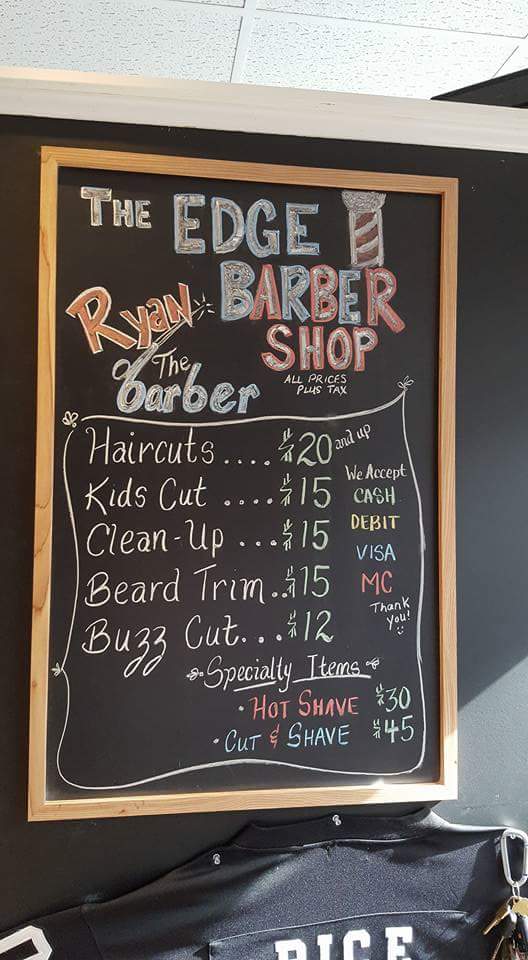 THE EDGE
BARBER
SHOP
Ryan
The
barber
ALL PRICES
PLUS TAX
Haircuts .... $20 and up
Kids Cut .... $15
Clean-Up ... $15
Beard Trim.. $15
Buzz Cut... $12
We Accept
CASH
DEBIT
VISA
MC
Thank
you!
Specialty Items
• HOT SHAVE $30
• CUT & SHAVE $45
RICE